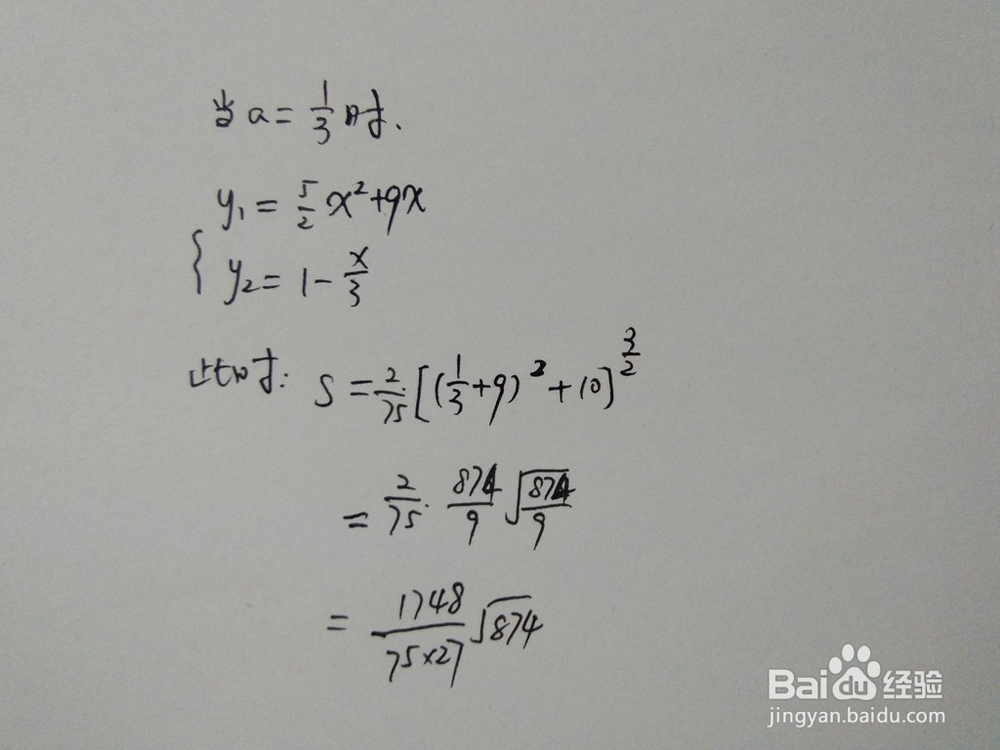 当a=1/3时.
y₁=5/2x²+9x
{y₂=1-x/3
此时:S=2/75[(1/3+9)²+10]^(3/2)
=2/75·874/9√(874/9)
=1748/(75×27)√874
Baidu经验
jingyan.baidu.com